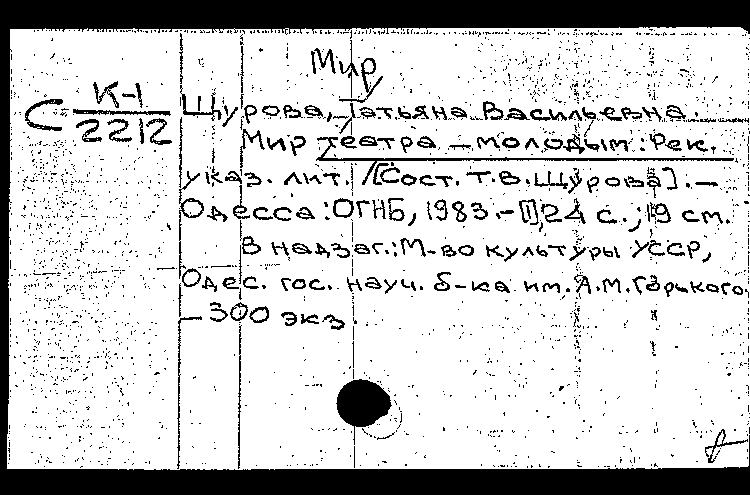 Мир
С К-1
2212
Щурова, Татьяна Васильевна.
Мир театра – молодым: Рек.
указ. лит. /[Сост. Т.В. Щурова]. –
Одесса: ОГНБ, 1983. – [1], 24 с.; 19 см.
В надзаг.: М-во культуры УССР,
Одес. гос. науч. б-ка им. А.М. Горького.
– 300 экз.